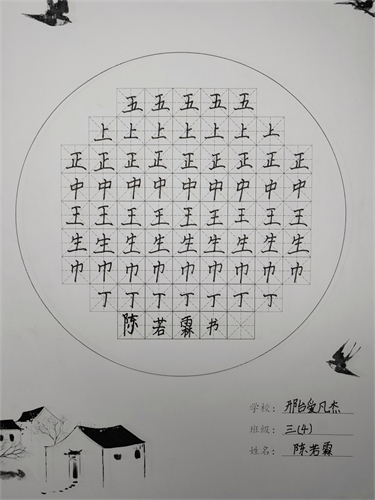 五五五五五
上上上上上上上
正正正正正正正正正
中中中中中中中中中
王王王王王王王王王
生生生生生生生生生
巾巾巾巾巾巾巾巾巾
丁丁丁丁丁丁丁
陈若霖书
学校：邢台爱凡杰
班级：三(4)
姓名：陈若霖